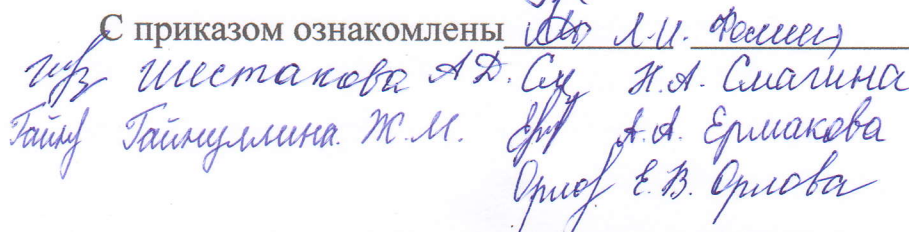 С приказом ознакомлены Л.И. Фомина
Шестакова А.Д. См Н.А. Смагина
Гайну Гайнуллина Ж.М. Ерм А.А. Ермакова
Орлов Е.В. Орлова